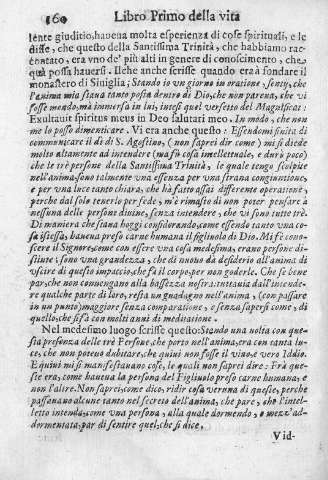 160 Libro Primo della vita
lente giuditio, haueua molta esperienza di cose spirituali, e le
disse, che questo della Santissima Trinità, che habbiamo rac-
contato, era vno de' più alti in genere di conoscimento, che
quà possa hauersi. Ilche anche scrisse quando era à fondare il
monastero di Siuiglia; Stando io vn giorno in oratione, sentij, che
l'anima mia staua tanto posta dentro di Dio, che non pareua, che vi
fosse mondo, mà immersa in lui, intesi quel versetto del Magnificat:
Exultauit spiritus meus in Deo salutari meo. In modo, che non
me lo posso dimenticare. Vi era anche questo: Essendomi finita di
communicare il dì di S. Agostino, (non saprei dir come) mi si diede
molto altamente ad intendere (mà fù cosa intellettuale, e durò poco)
che le trè persone della Santissima Trinità, le quale tengo scolpite
nell'anima sono talmente vna essenza per vna strana congiuntione,
e per vna luce tanto chiara, che hà fatto assai differente operatione,
perche dal solo tenerlo per fede, m'è rimasto di non poter pensare à
nessuna delle persone diuine, senza intendere, che vi sono tutte trè.
Di maniera che staua hoggi considerando, come essendo tanto vna co-
sa istessa, haueua preso carne humana il figliuolo di Dio. Mi fè cono-
scere il Signore, come con essere vna cosa medesima, erano persone di-
stinte: sono vna grandezza, che di nuouo dà desiderio all'anima di
vscire di questo impaccio, che fà il corpo, per non goderle. Che se bene
par, che non conuengano alla bassezza nostra, tuttauia dall'intende-
re qualche parte di loro, resta vn guadagno nell'anima, (con passare
in vn punto) maggior senza comparatione, e senza sapersi come, di
quello, che si fà con molti anni di meditatione.
Nel medesimo luogo scrisse questo: Stando vna volta con que-
sta presenza delle trè Persone, che porto nell'anima, era con tanta lu-
ce, che non poteuo dubitare, che quiui non fosse il viuo, e vero Iddio.
E quiui mi si manifestauano cose, le quali non saprei dire: Frà que-
ste era, come haueua la persona del Figliuolo preso carne humana; e
non l'altre. Non saprei, come dico, ridir cosa veruna di queste, perche
passauano alcune tanto nel secreto dell'anima, che pare, che l'intel-
letto intenda, come vna persona, alla quale dormendo, e mezz'ad-
dormentata, par di sentire quel, che si dice.
Vid-